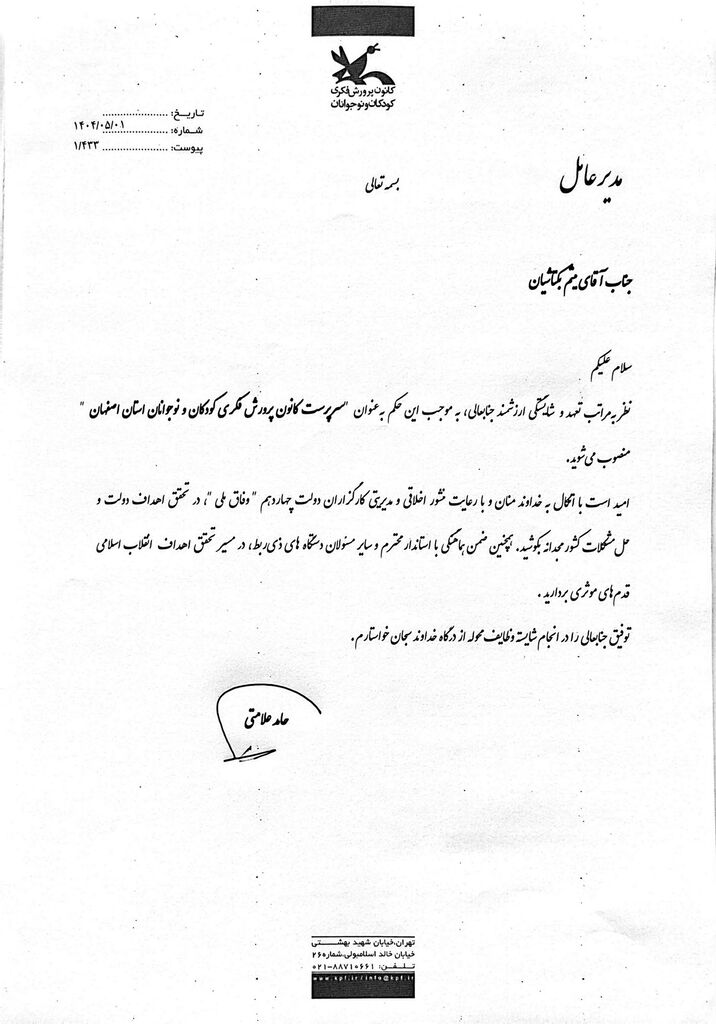 کانون پرورش فکری
کودکان و نوجوانان
تاریخ: ......................
شماره: ...................... ۱۴۰۴/۰۵/۰۱
پیوست: ...................... ۱/۴۳۳
مدیرعامل
بسمه تعالی
جناب آقای میثم بکتاشیان
سلام علیکم
نظر به مراتب تعهد و شایستگی ارزشمند جنابعالی، به موجب این حکم به عنوان "سرپرست کانون پرورش فکری کودکان و نوجوانان استان اصفهان "
منصوب می‌شوید.
امید است با اتکال به خداوند منان و با رعایت منشور اخلاقی و مدیریتی کارگزاران دولت چهاردهم "وفاق ملی "، در تحقق اهداف دولت و
حل مشکلات کشور مجدانه بکوشید. همچنین ضمن هماهنگی با استاندار محترم و سایر مسئولان دستگاه های ذی‌ربط، در مسیر تحقق اهداف انقلاب اسلامی
قدم‌های موثری بردارید .
توفیق جنابعالی را در انجام شایسته وظایف محوله از درگاه خداوند سبحان خواستارم.
حامد علامتی
تهران،خیابان شهید بهشتی
خیابان خالد اسلامبولی،شماره ۲۶
تلفن: ۸۸۷۱۰۶۶۱-۰۲۱
www.kpf.ir/info@kpf.ir